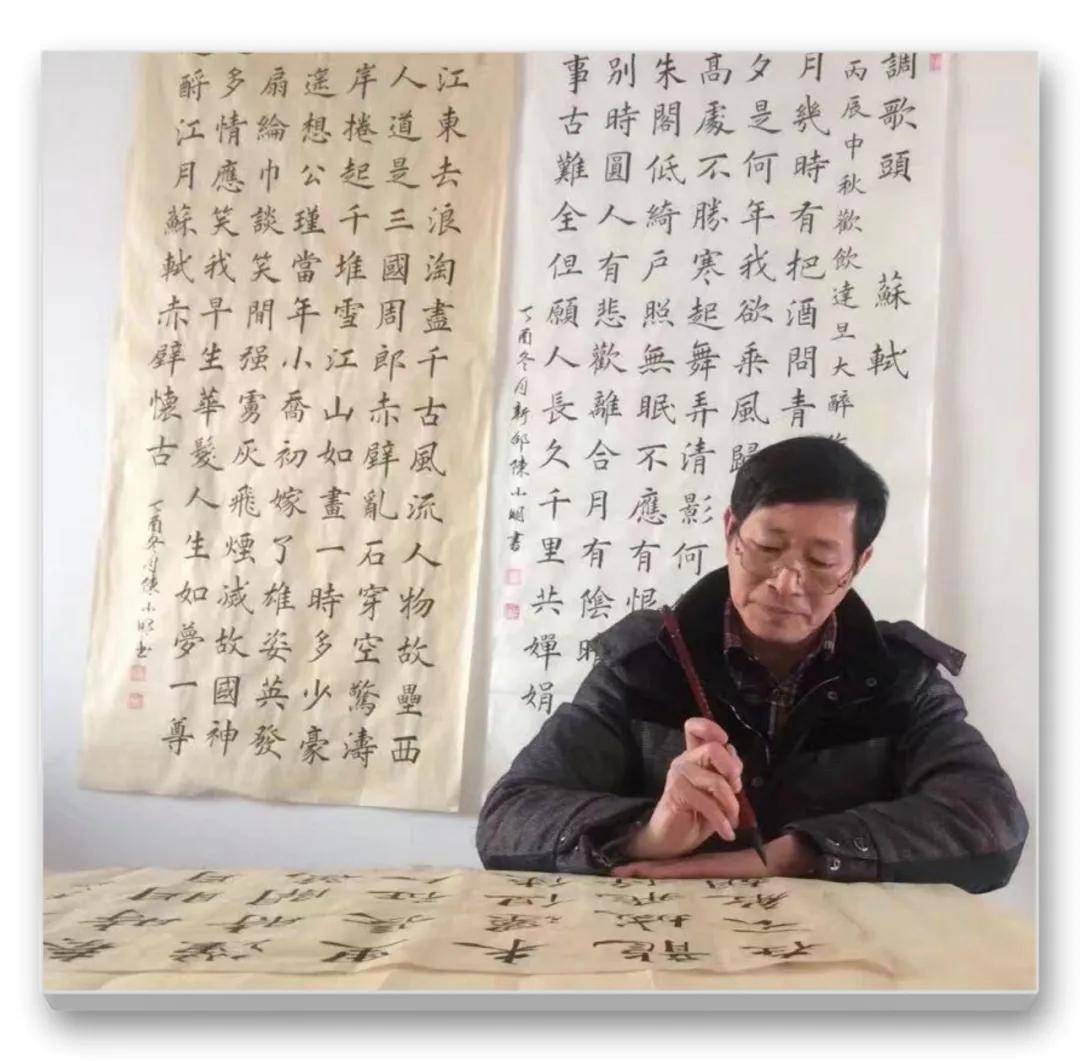 調歌頭 蘇軾
丙辰中秋歡飲達旦大醉
月幾時有把酒問青
夕是何年我欲乘風歸
高處不勝寒起舞弄清影何
朱閣低綺戶照無眠不應有恨
別時圓人有悲歡離合月有陰晴
事古難全但願人長久千里共嬋娟
丁酉冬月新邵陳小書
江東去浪淘盡千古風流人物故壘西
人道是三國周郎赤壁亂石穿空驚濤
岸捲起千堆雪江山如畫一時多少豪
遙想公瑾當年小喬初嫁了雄姿英發
扇綸巾談笑間强虜灰飛煙滅故國神
多情應笑我早生華髮人生如夢一尊
酹江月蘇軾赤壁懷古
丁酉冬月陳小书